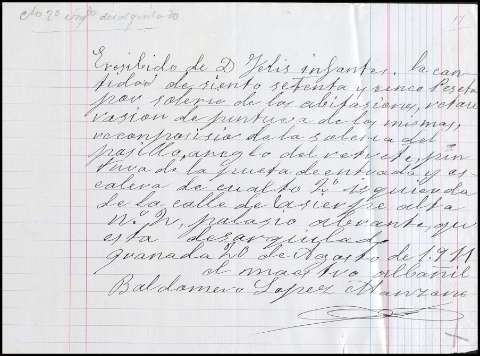 cto 2º izqº desarquilado
17
Erecibido de D Felis infantes. la can-
tidad de siento setenta y cinco Peseta
por solerio de las abitasiones, retare
vision de puntura de las mismas,
recomposisio de la solería del
pasillo, areglo del retrete, pin
tura de la puerta de entrada y es
calera de cualto 2º isquierda
de la calle de la sierpe alta
nº 2, palasio alerante, que
esta desarquilado
granada 20 de Agosto de 1911
el maestro albanil
Baldomero Lopez Manzano